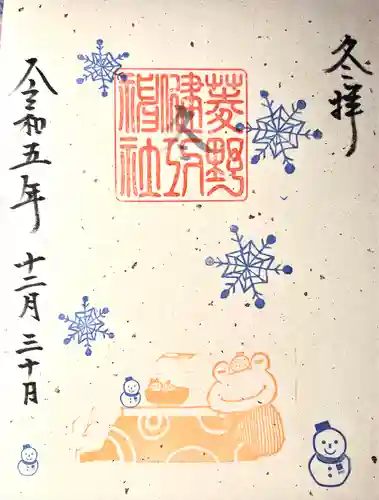 冬拝
菱野
健功
神社
令和五年 十二月 三十日